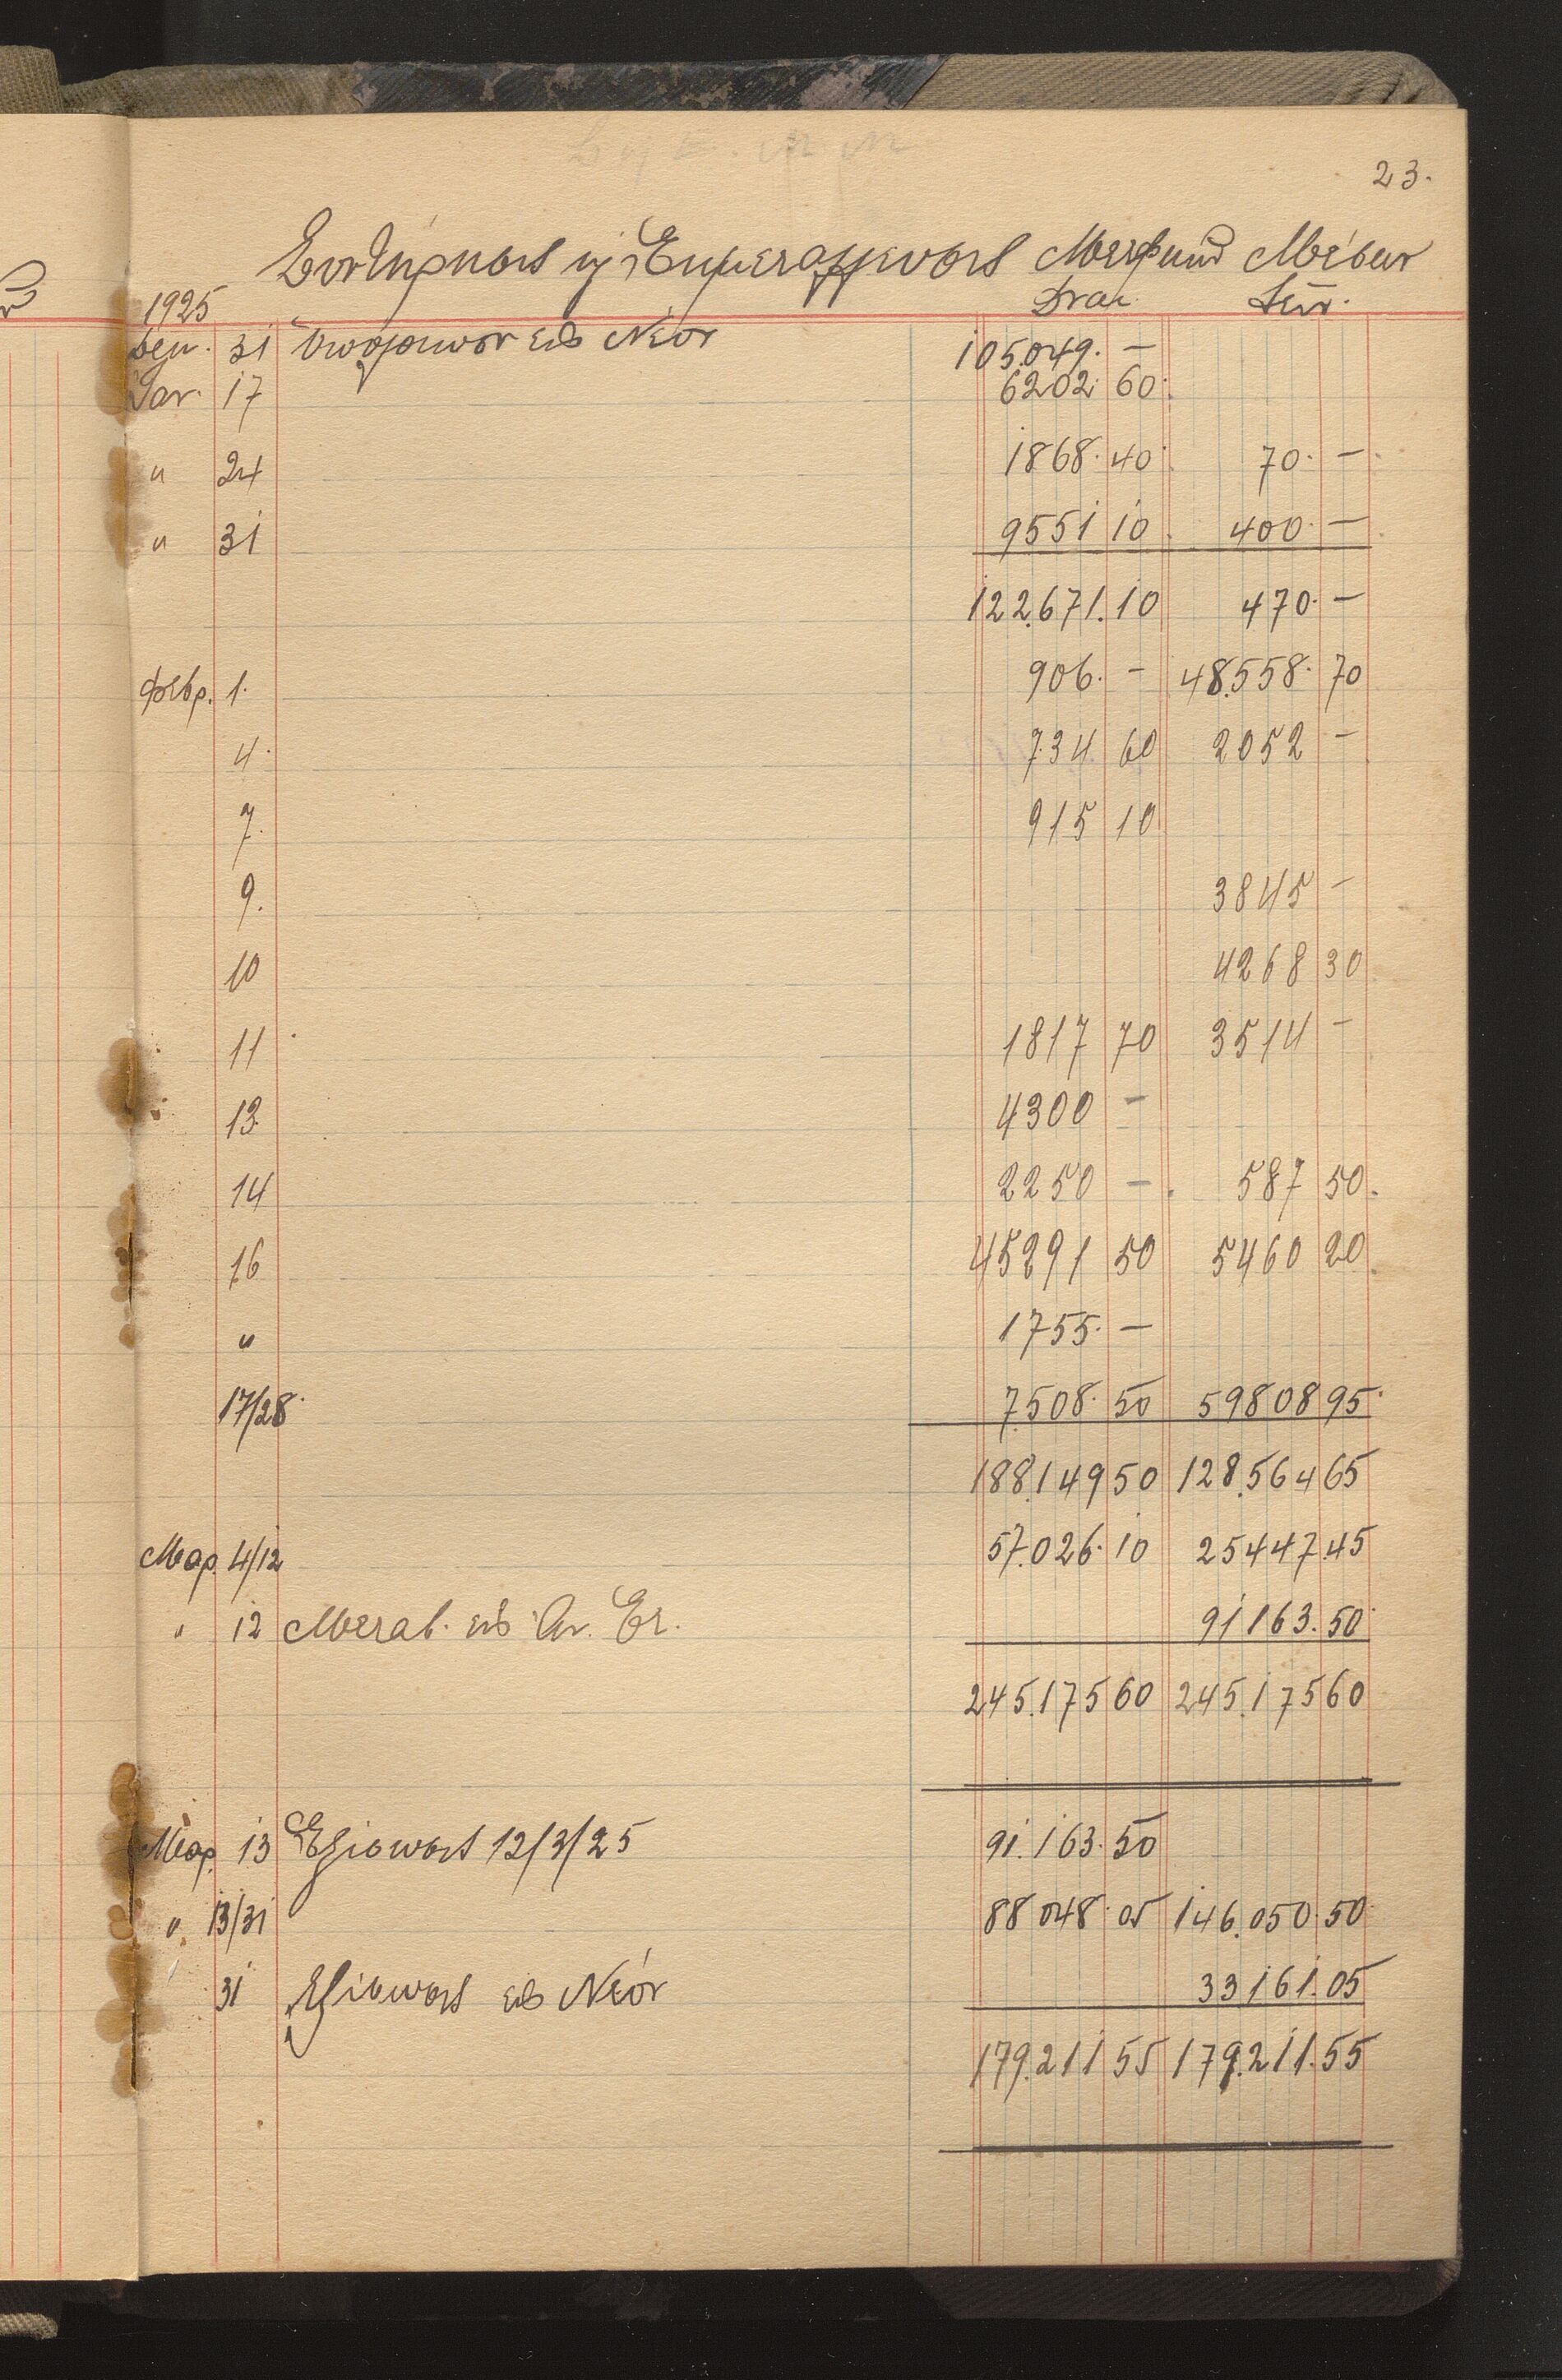 23.
Συντήρησις ἢ Ἐκμετάλλευσις Μεταφ. Μέσων
1925
Δεκ. 31 Ὑπόλοιπον εἰς Νέον 105.049. —
Ἰαν. 17 6202. 60.
" 24 1868. 40. 70. —
" 31 9551 10. 400. —
122.671.10 470. —
Φεβρ. 1. 906. — 48.558. 70
4. 734 60 2052 —
7. 915 10
9. 3845 —
10 4268 30
11 1817 70 3514 —
13 4300 —
14 2250 — 587 50.
16 45291 50 5460 20.
" 1755. —
17/28. 7.508. 50 59808 95.
188.149 50 128.564 65
Μαρ. 4/12 57.026. 10 25447.45
" 12 Μεταβ. εἰς 91163. 50
245.175 60 245.175 60
Μαρ. 13 Ἐξίσωσις 12/3/25 91.163. 50
" 13/31 88 048. 05 146.050. 50
31 Ἐξίσωσις εἰς Νέον 33161.05
179.211 55 179.211.55